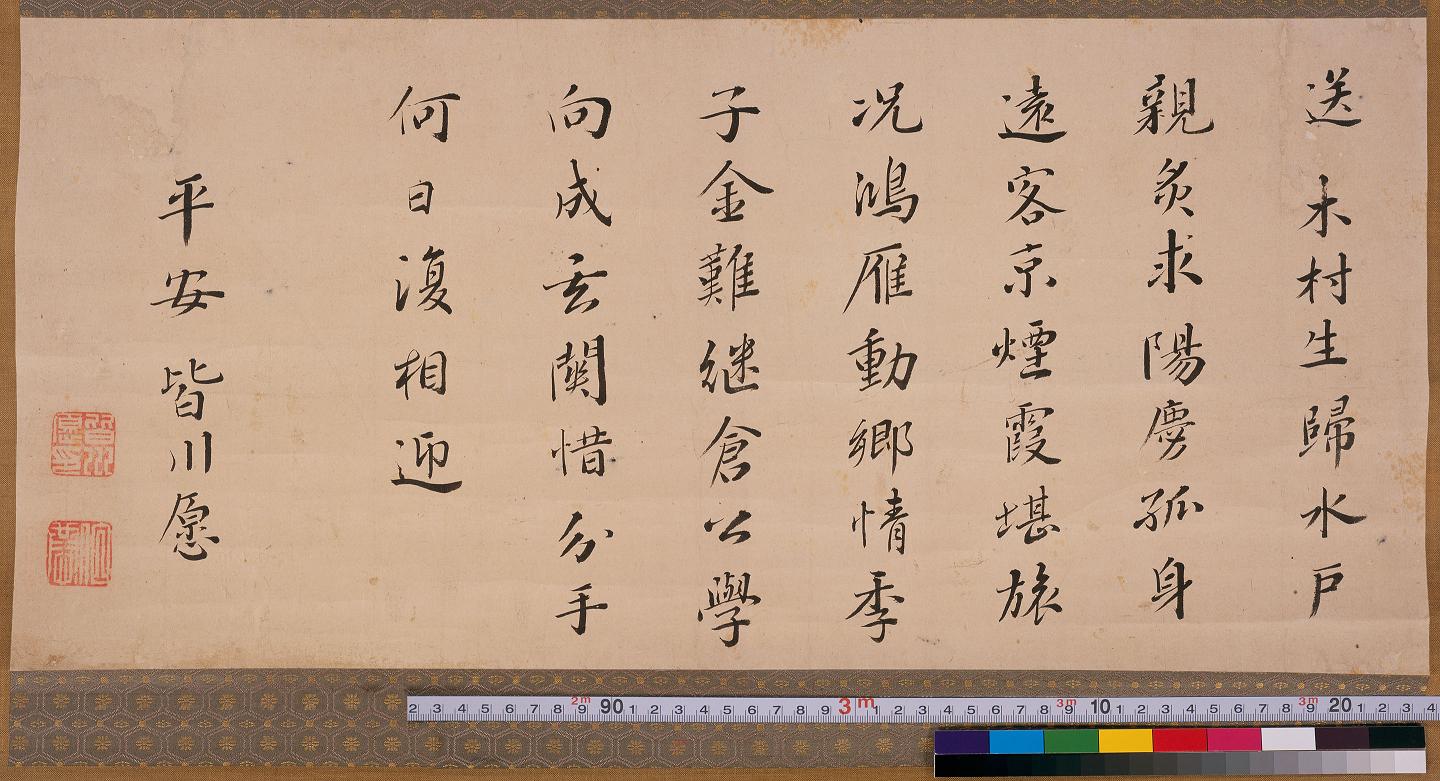 送 木村生歸水戸
親炙求陽慶孤身
遠客京煙霞堪旅
况鴻雁動鄉情季
子金難継倉公學
向成玄關惜分手
何日復相迎
平安 皆川愿
皆川愿印
2 3 4 5 6 7 8 2m 9 90 1 2 3 4 5 6 7 8 9 3m 1 2 3 4 5 6 7 8 3m 9 10 1 2 3 4 5 6 7 8 3m 9 20 1 2 3 4